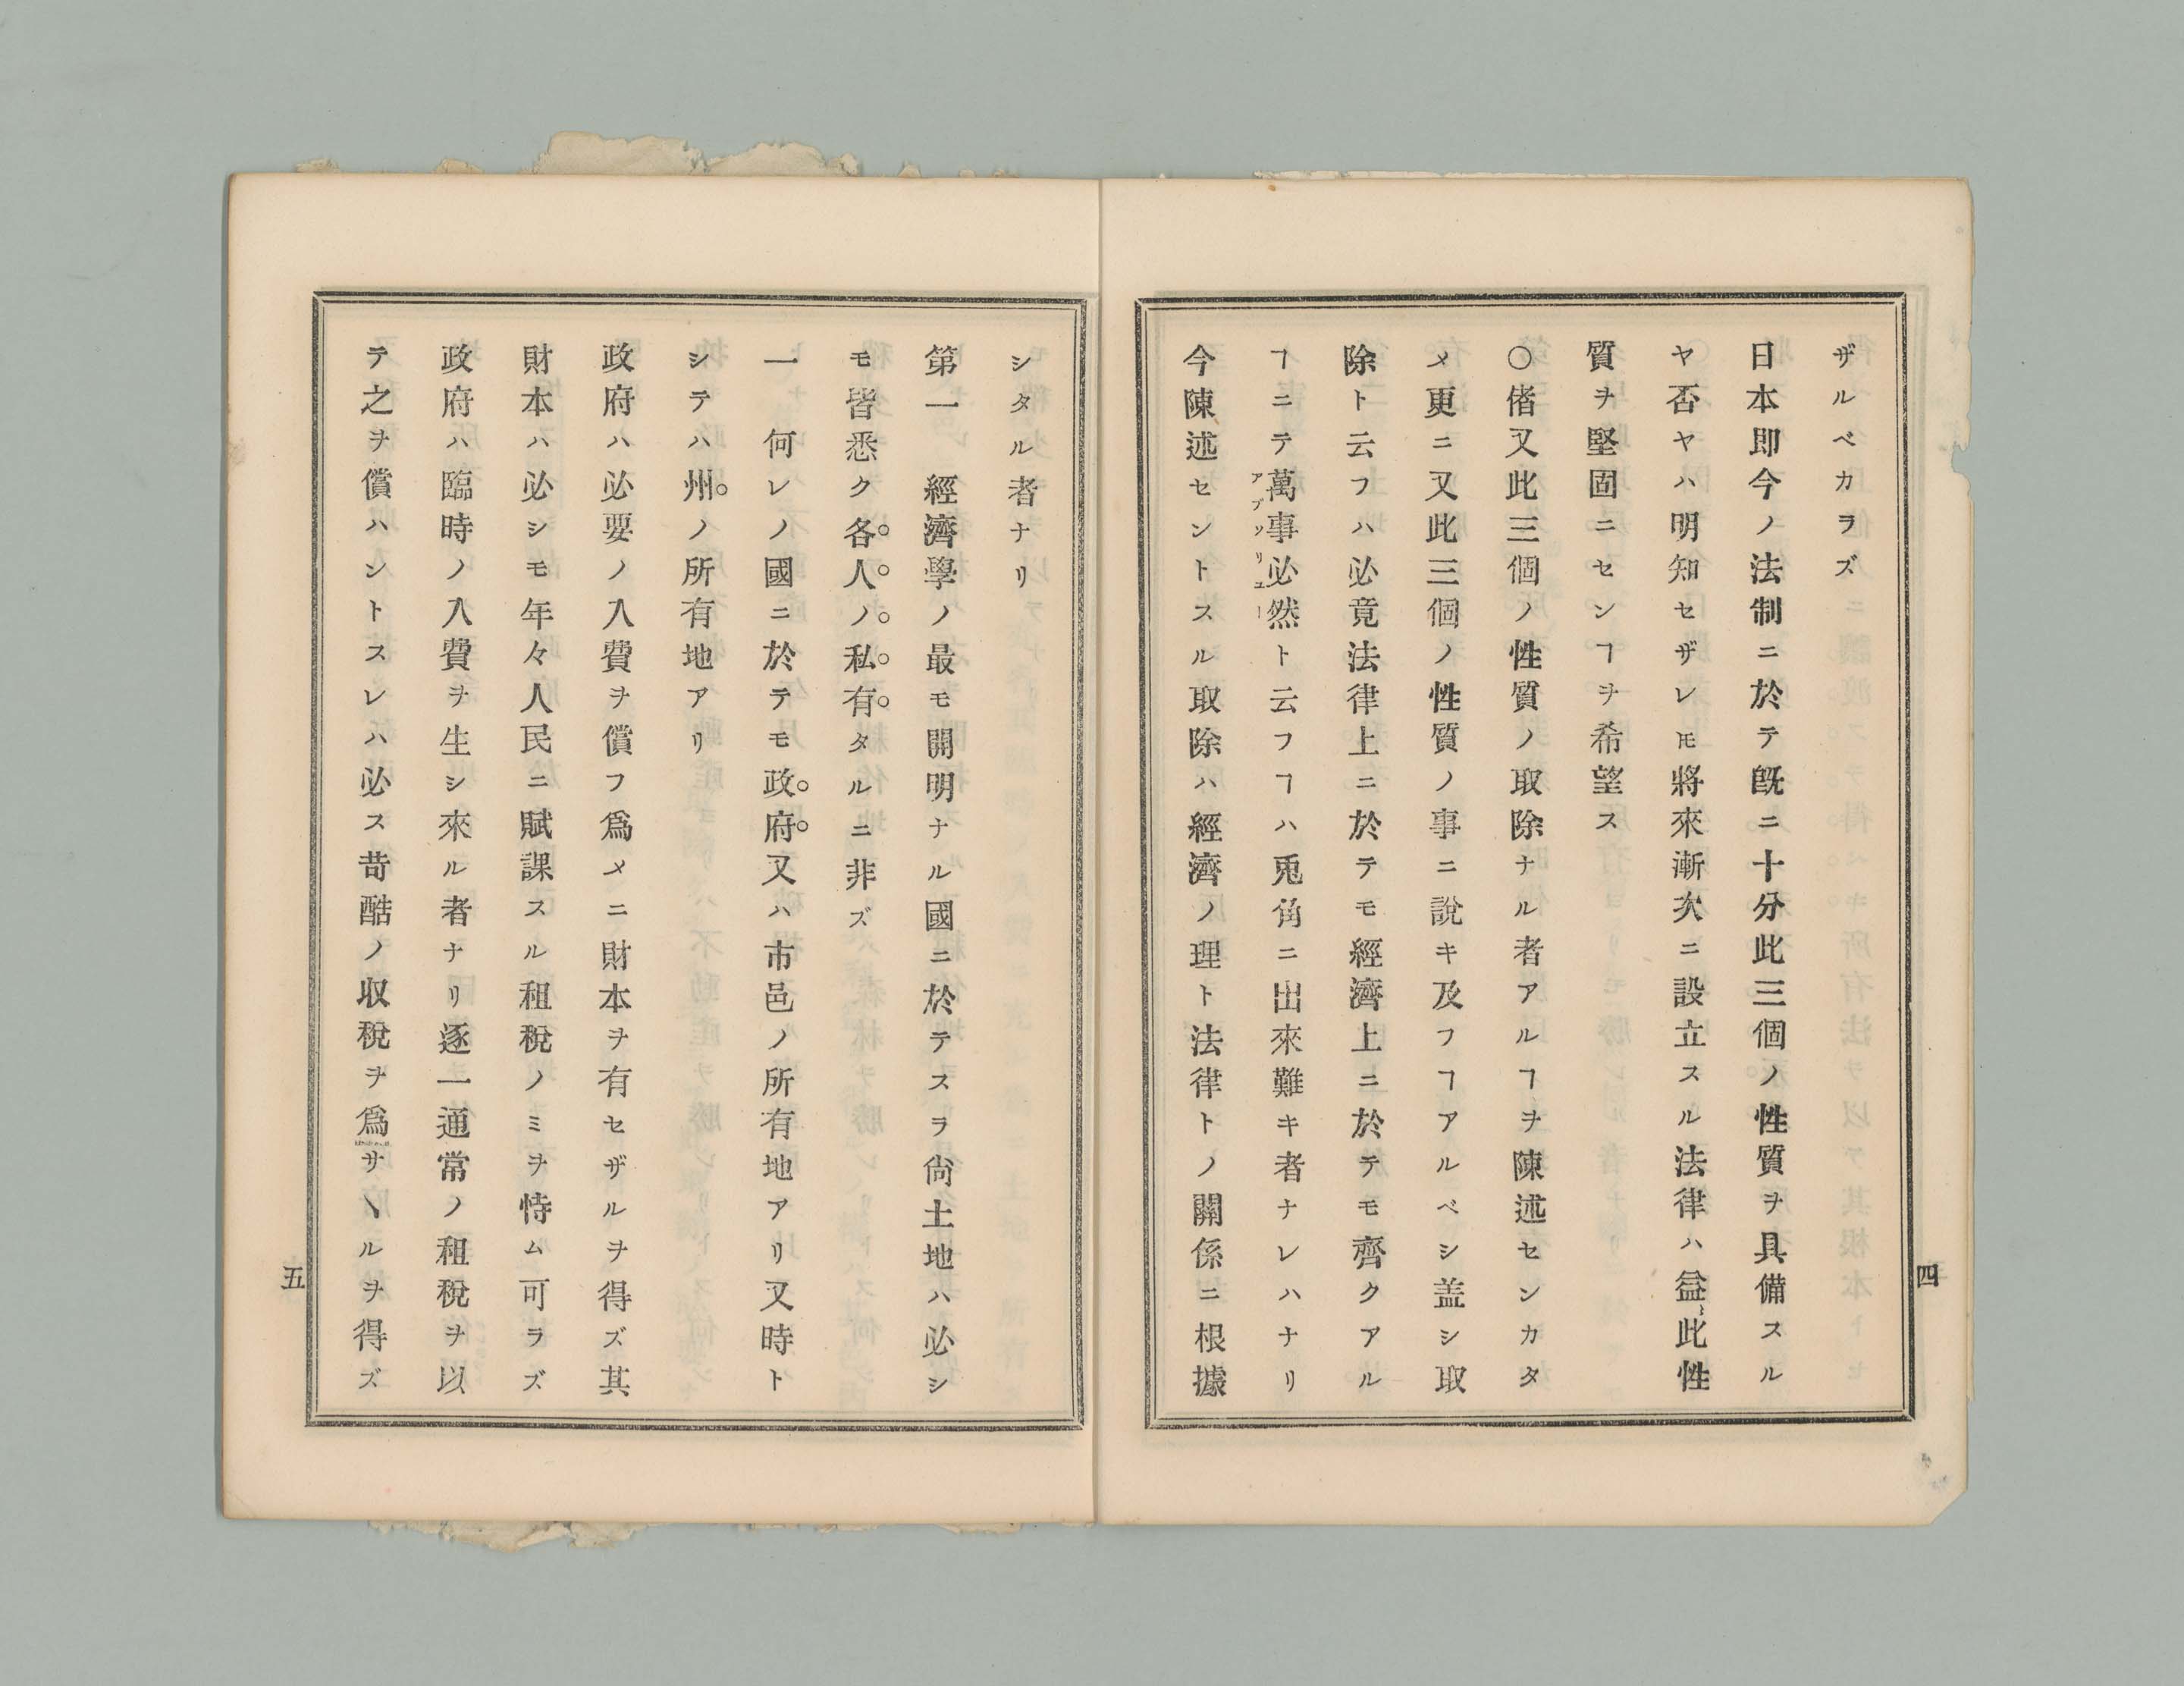 ザルベカラズ
日本即今ノ法制ニ於テ旣ニ十分此三個ノ性質ヲ具備スル
ヤ否ヤハ明知セザレ𪜈將來漸次ニ設立スル法律ハ益〻此性
質ヲ堅固ニセンヿヲ希望ス
〇偖又此三個ノ性質ノ取除ナル者アルヿヲ陳述センカタ
メ更ニ又此三個ノ性質ノ事ニ說キ及フヿアルベシ盖シ取
除ト云フハ必竟法律上ニ於テモ經濟上ニ於テモ齊クアル
ヿニテ萬事必然ト云フヿハ兎角ニ出來難キ者ナレハナリ
アブソリユー
今陳述セントスル取除ハ經濟ノ理ト法律トノ關係ニ根據
四
シタル者ナリ
第一 經濟學ノ最モ開明ナル國ニ於テスラ尙土地ハ必シ
モ皆悉ク各人ノ私有タルニ非ズ
一 何レノ國ニ於テモ政府又ハ市邑ノ所有地アリ又時ト
シテハ州ノ所有地アリ
政府ハ必要ノ入費ヲ償フ爲メニ財本ヲ有セザルヲ得ズ其
財本ハ必シモ年々人民ニ賦課スル租稅ノミヲ恃ム可ラズ
政府ハ臨時ノ入費ヲ生シ來ル者ナリ逐一通常ノ租稅ヲ以
テ之ヲ償ハントスレハ必ス苛酷ノ収稅ヲ爲サヽルヲ得ズ
五